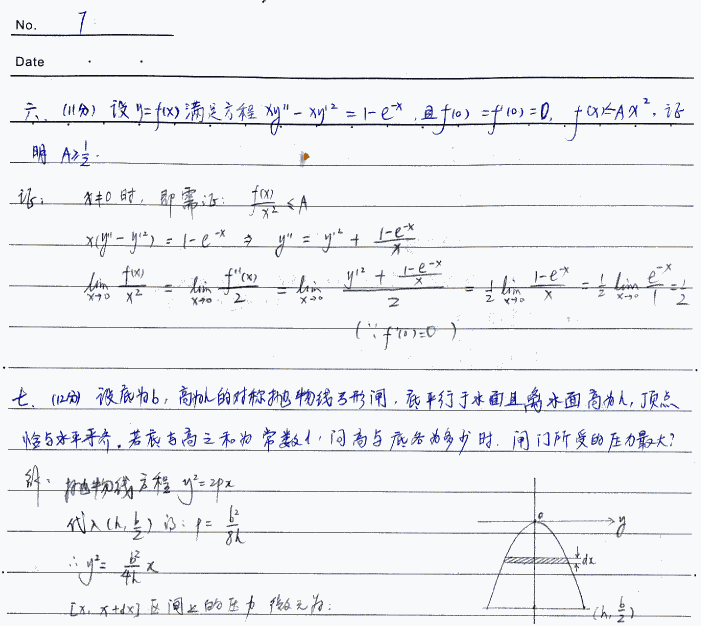 No. 7
Date . .
六、(11分) 设 y=f(x) 满足方程 xy''-xy'²=1-e^{-x}, 且 f(0)=f'(0)=0, f(x)≤Ax², 证
明 A≥1/2.
证: x≠0时, 即需证: f(x)/x² ≤A
x(y''-y'²)=1-e^{-x} ⇒ y''=y'²+(1-e^{-x})/x
lim_{x→0} f(x)/x² = lim_{x→0} f''(x)/2 = lim_{x→0} (y'²+(1-e^{-x})/x)/2 = 1/2 lim_{x→0} (1-e^{-x})/x = 1/2 lim_{x→0} e^{-x}/1 = 1/2
(∵ f'(0)=0)
七、(12分) 设底为b, 高为h的对称抛物线弓形闸, 底平行于水面且离水面高为h, 顶点
恰与水平齐. 若底与高之和为常数l, 问高与底各为多少时, 闸门所受的压力最大?
解: 抛物线方程 y²=2px
代入(h, b/2) 得: p=b²/8h
∴ y²= b²/4h x
[x, x+dx] 区间上的压力微元为:
0
y
dx
(h, b/2)